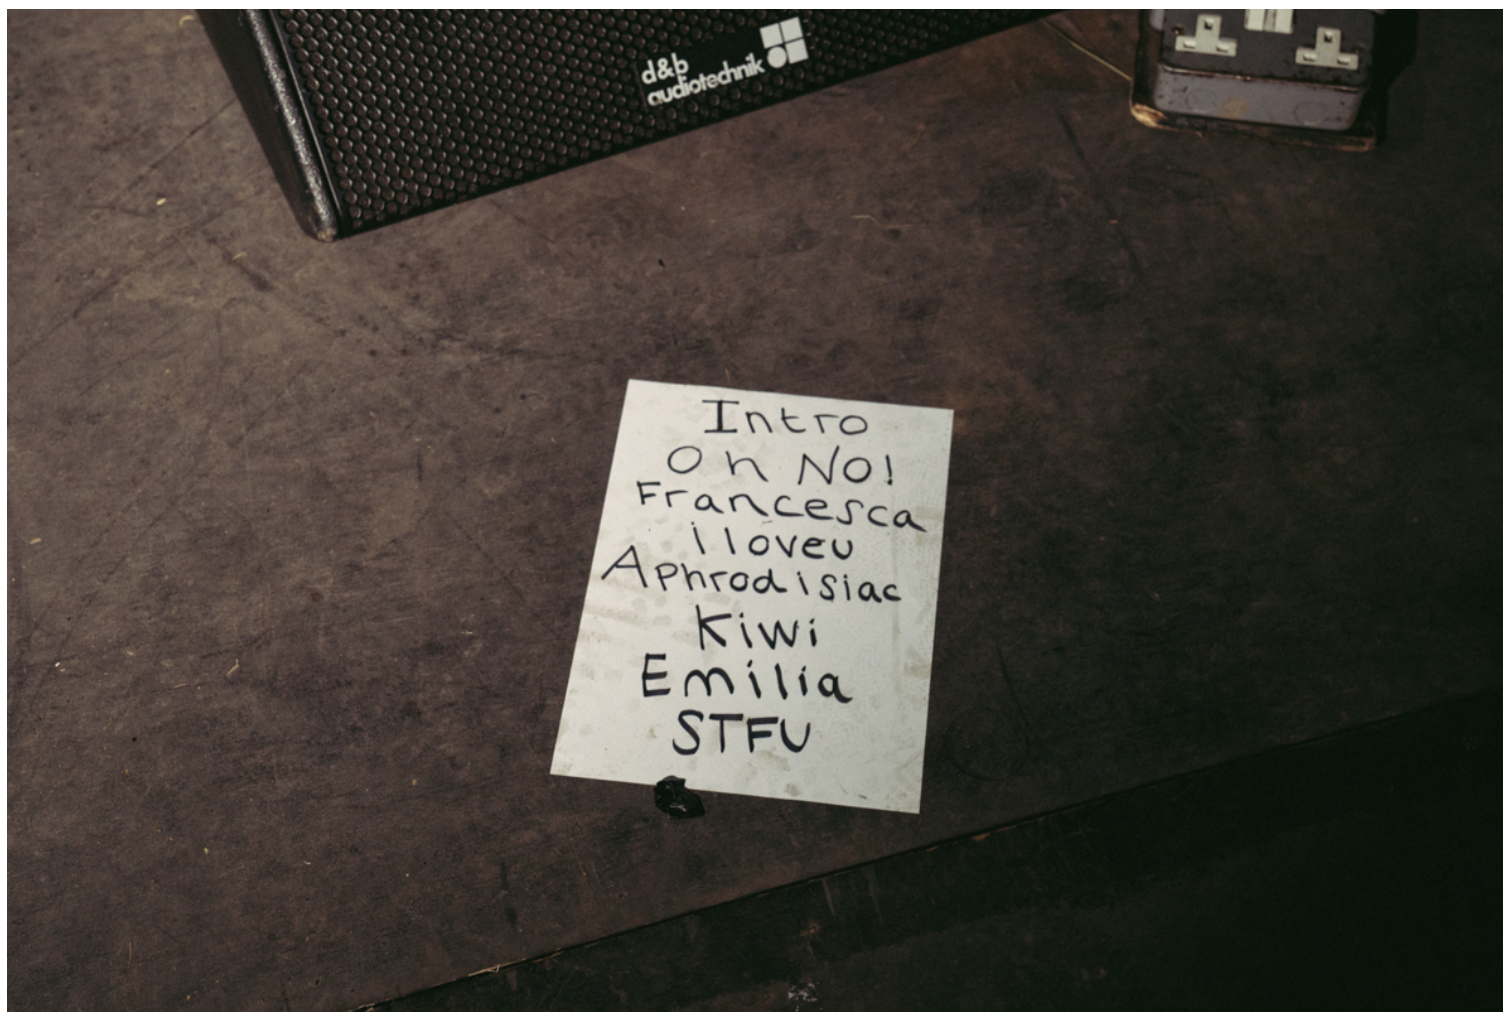 d&b
audiotechnik
Intro
Oh NO!
Francesca
iloveu
Aphrodisiac
Kiwi
Emilia
STFU